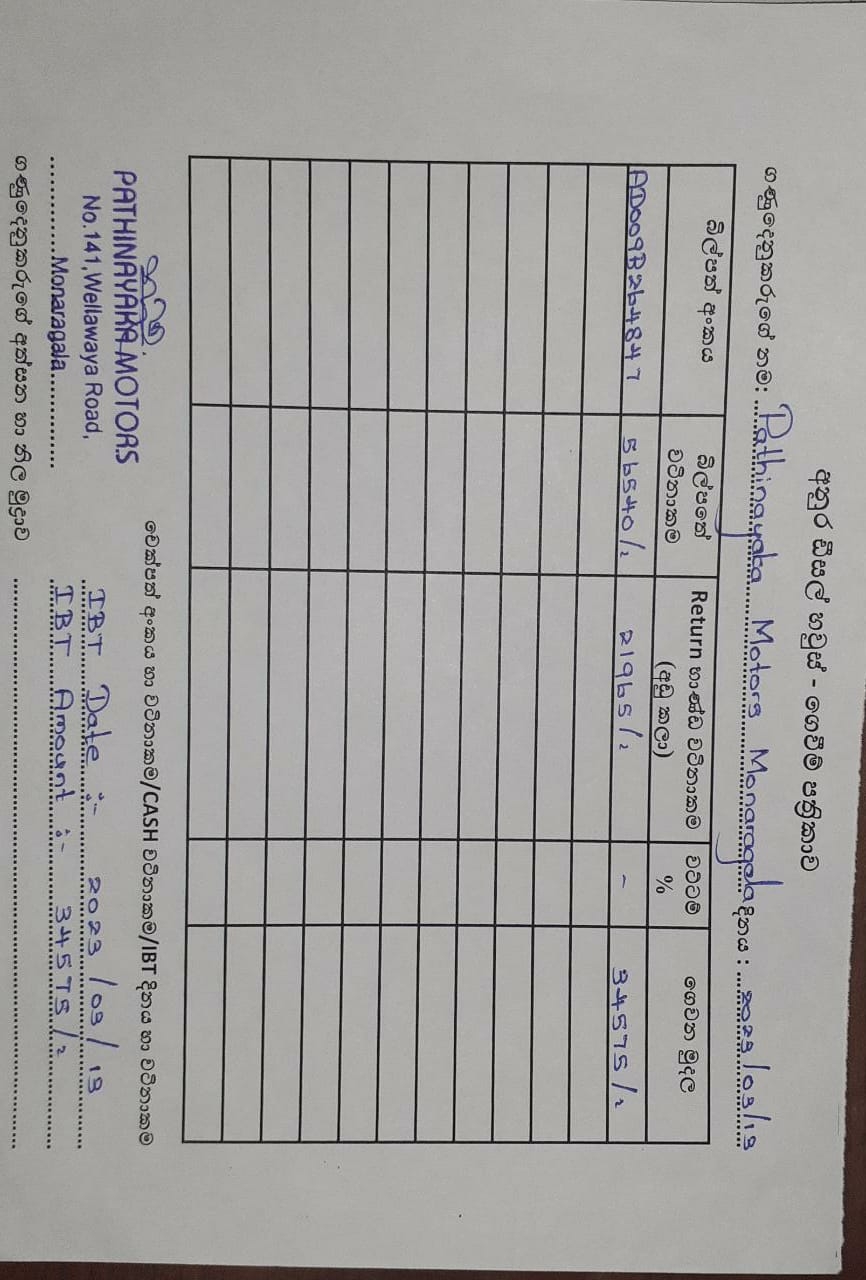 අනුර ඩීසල් හවුස් - ගෙවීම් පත්‍රිකාව
ගණුදෙනුකරුගේ නම: Pathinayaka Motors Monaragala දිනය: 2023/03/13
බිල්පත් අංකය බිල්පතේ වටිනාකම Return භාණ්ඩ වටිනාකම (අඩු කලා) වට්ටම් % ගෙවන මුදල
AD009B264847 56540/2 21965/2 - 34575/2
චෙක්පත් අංකය හා වටිනාකම/CASH වටිනාකම/IBT දිනය හා වටිනාකම
PATHINAYAKA MOTORS
No.141,Wellawaya Road,
Monaragala
IBT Date :- 2023/03/13
IBT Amount :- 34575/2
ගණුදෙනුකරුගේ අත්සන හා නිල මුද්‍රාව